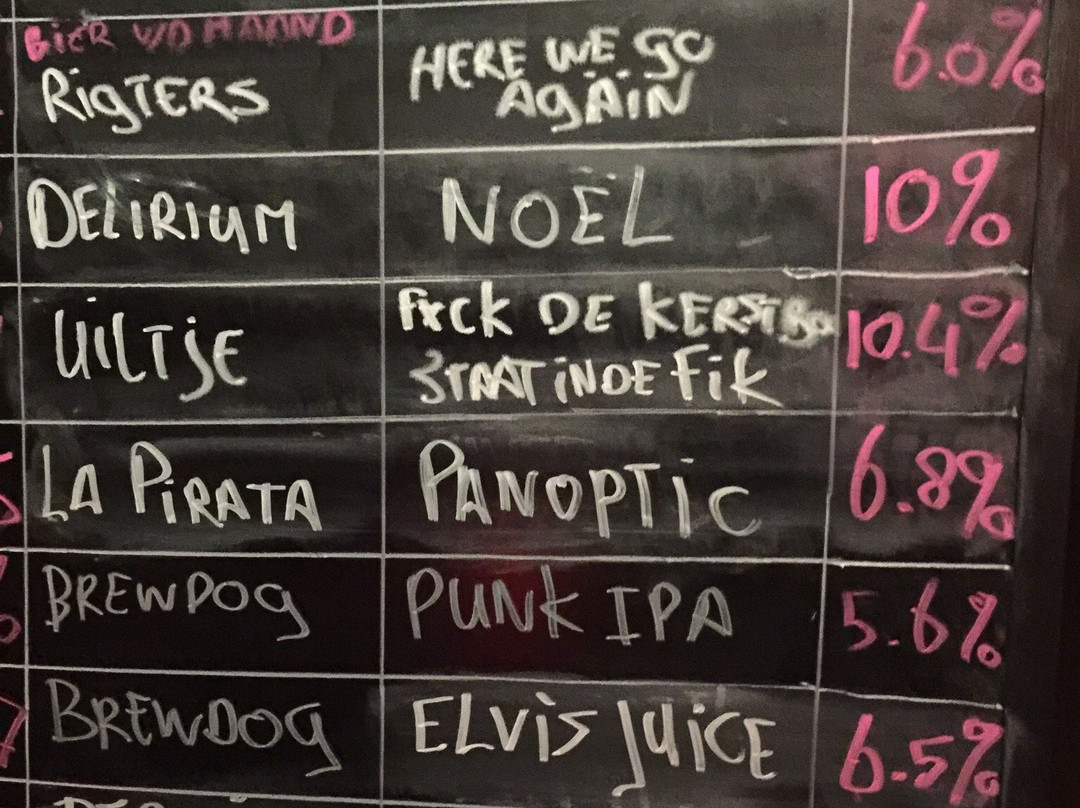 BiER V/D MAAND
RigTERS
HERE WE GO
AGAIN
6.0%
DELIRIUM
NOËL
10%
UILTJE
FXCK DE KERSTBO
STAAT iN DE FiK
10.4%
LA PiRATA
PANOPTiC
6.8%
BREWDOG
PUNK IPA
5.6%
BREWDOG
ELViS JUiCE
6.5%